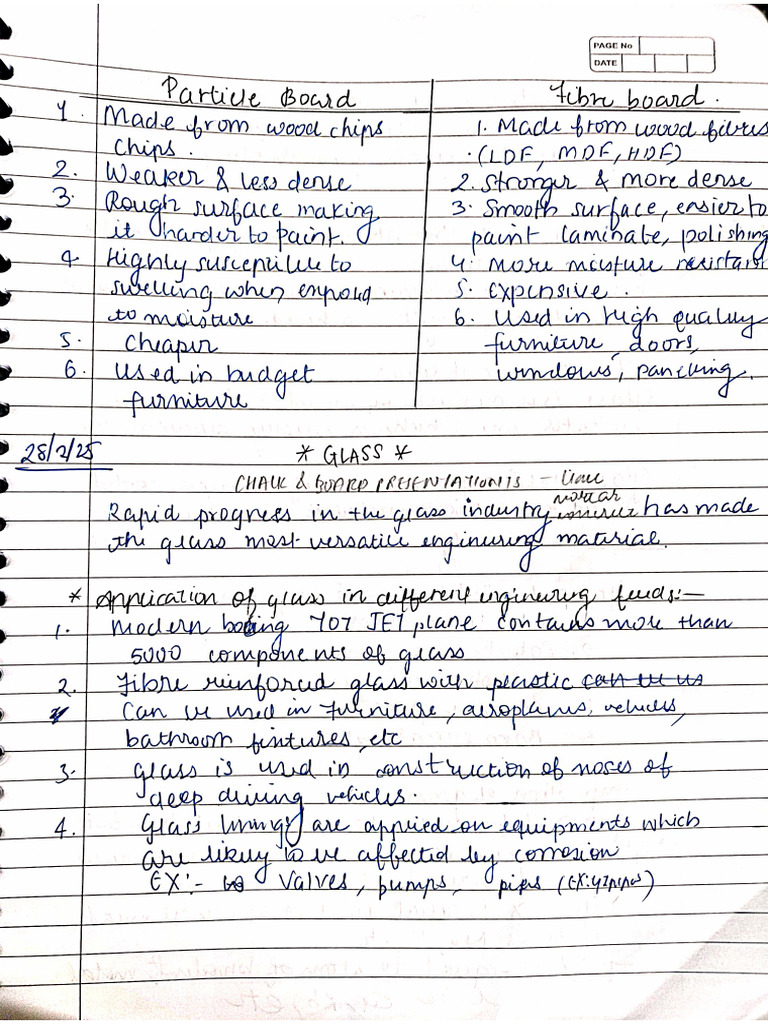 PAGE No
DATE
Particle Board
Fibre board.
1. Made from wood chips
chips.
2. Weaker & less dense
3. Rough surface making
it harder to paint.
4. Highly susceptible to
swelling when exposed
to moisture
5. Cheaper
6. Used in budget
furniture
1. Made from wood fibres
(LDF, MDF, HDF)
2. Stronger & more dense
3. Smooth surface, easier to
paint laminate, polishing
4. More moisture resistant
5. Expensive.
6. Used in high quality
furniture, doors,
windows, panelling.
28/2/25
* GLASS *
CHALK & BOARD PRESENTATION IS - lime
mortar
Rapid progress in the glass industry has made
the glass most versatile engineering material.
* Application of glass in different engineering fields:-
1. Modern boeing 707 JET plane contains more than
5000 components of glass
2. Fibre reinforced glass with plastic can be us
Can be used in furniture, aeroplanes, vehicles,
bathroom fixtures, etc
3. Glass is used in construction of noses of
deep driving vehicles.
4. Glass linings are applied on equipments which
are likely to be affected by corrosion
EX:- Valves, pumps, pipes (EX: